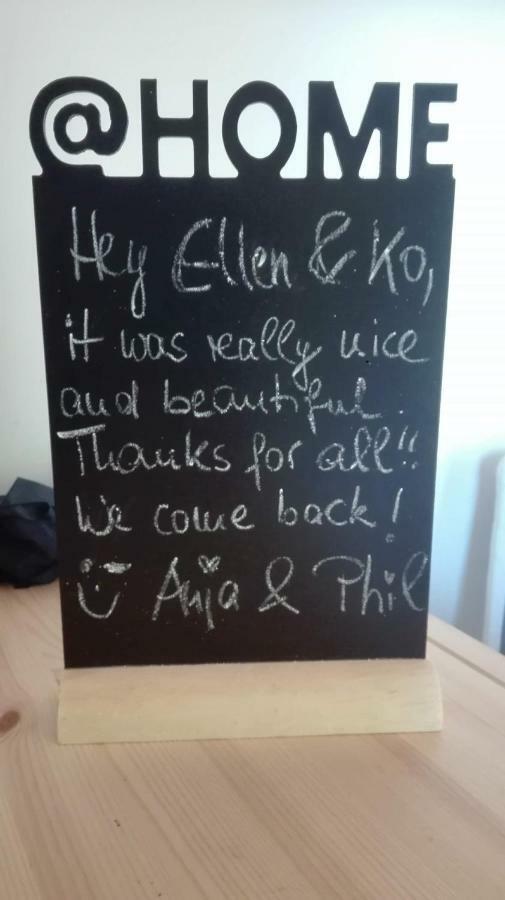 @HOME
Hey Ellen & Ko,
it was really nice
and beautiful.
Thanks for all!!
We come back!
Anja & Phil